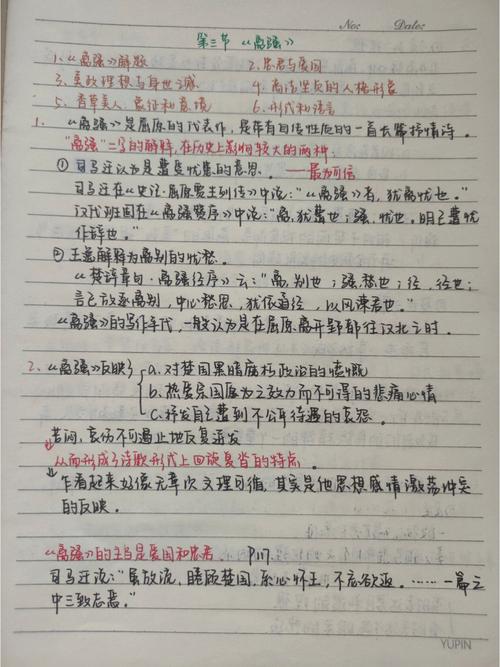 No: Date:
第三节 《离骚》
1、《离骚》解题 2. 忠君与爱国
3. 美政理想与身世之感 4. 高洁坚贞的人格形象
5. 香草美人、象征和意境 6. 形式和语言
1. 《离骚》是屈原的代表作，是带有自传性质的一首长篇抒情诗。
"离骚"二字的解释，在历史上影响较大的两种：
① 司马迁认为是遭受忧患的意思。——最为可信
司马迁在《史记·屈原贾生列传》中说："《离骚》者，犹离忧也。"
汉代班固在《离骚赞序》中说："离，犹遭也；骚，忧也。明己遭忧
作辞也。"
② 王逸解释为离别的忧愁。
《楚辞章句·离骚经序》云："离，别也；骚，愁也；径，径也；
言己放逐离别，中心愁思，犹依道径，以风谏君也。"
《离骚》的写作年代，一般认为是在屈原离开郢都往汉北之时。
2. 《离骚》反映了 a. 对楚国黑暗腐朽政治的愤慨
b. 热爱宗国愿为之效力而不可得的悲痛心情
c. 抒发自己遭到不公平待遇的哀怨。
哀伤不可遏止地反复迸发
从而形成了诗歌形式上回旋复沓的特质。
乍看起来好像无章次文理可循，其实是他思想感情激荡冲突
的反映。
《离骚》的主旨是爱国和忠君。 P117
司马迁说："虽放流，睠顾楚国，系心怀王，不忘欲返。……一篇之
中三致志焉。"
YUPIN